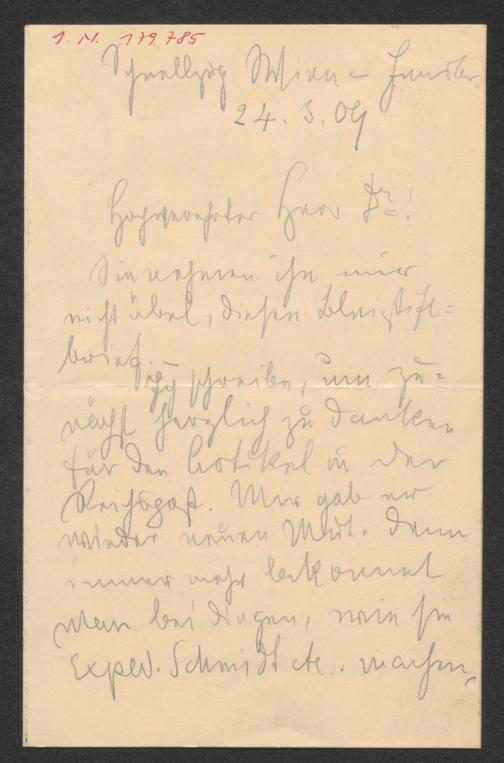 I. N. 179.785
Schnellzug Wien – Innsbr.
24. 3. 09
Hochverehrter Herr Dr.!
Sie nehmen ihn mir
nicht übel, diesen Bleistift=
brief. –
Ich schreibe, um zu=
nächst herzlich zu danken
für den Artikel in der
Reichspost. Mir gab er
wieder neuen Mut. Denn
immer mehr bekommt
man bei Dingen, wie sie
Exped. Schmidt etc. machen,